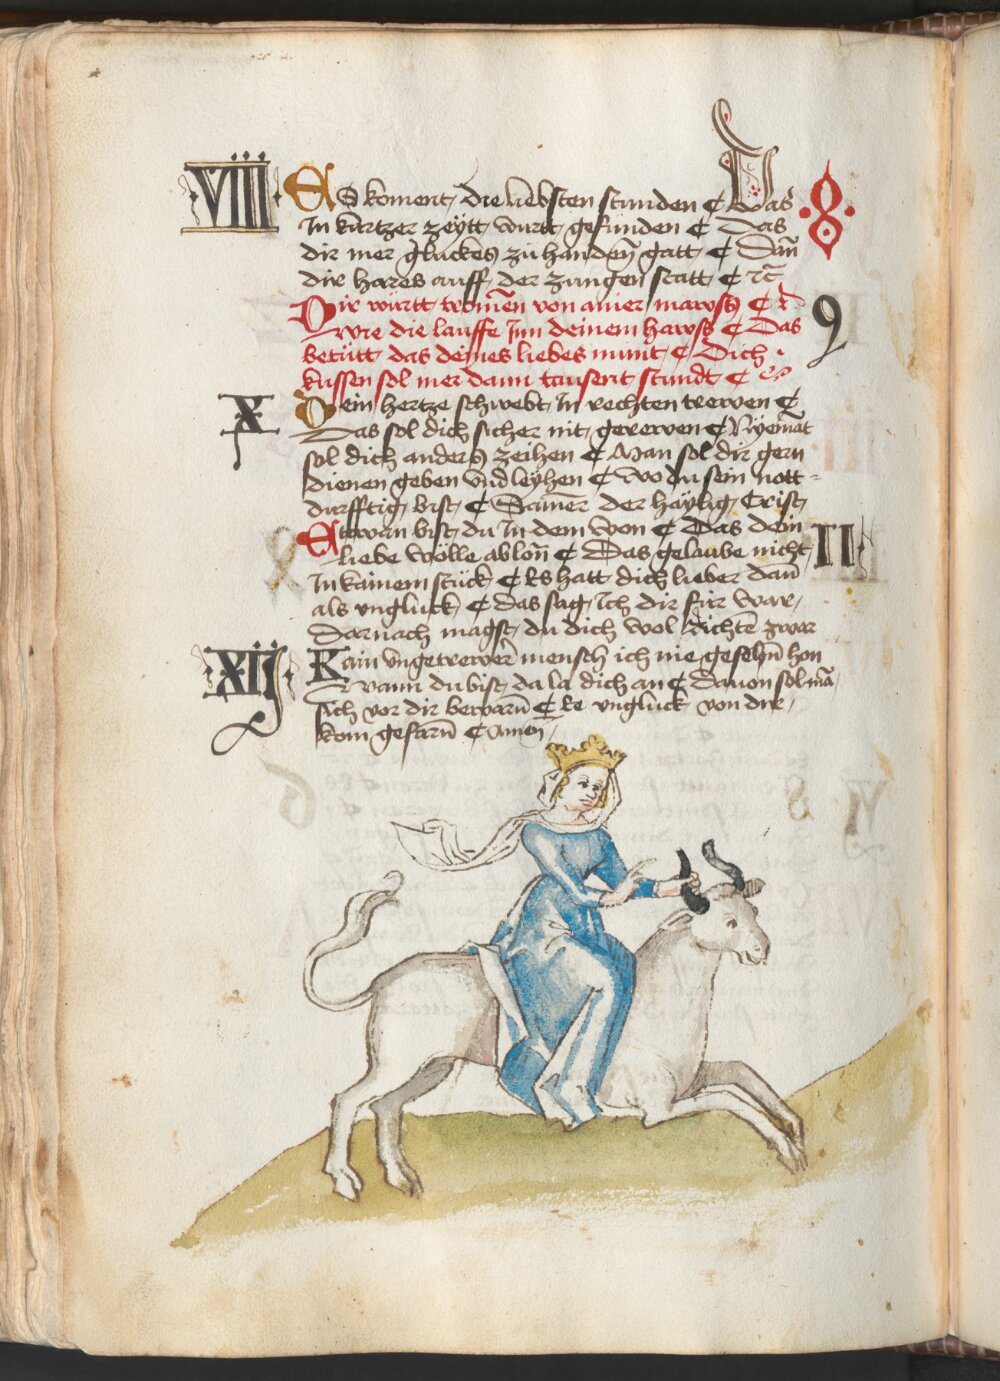 VIII ES koment die liebsten stunden ¢ Das 8
In kurtzer zeÿtt wurtt gefunden ¢ Das
dir mer gluckes zu handen̄ gatt ¢ Dan̄
dir hares auff der zungen statt ¢ ꝛc̄
Dir württ tromen̄ von ainer mawss ¢ 9
Wie die lauffe Inn deinem hawss ¢ Das
betütt das deines liebes munt ¢ Dich
kussen sol mer dann tausent stundt ¢
X Dein hertze schwebt In rechten trewen ¢
Das sol dich sicher nit gerewen ¢ Nÿemāt
sol dich anders zeihen ¢ Man sol dir gern
dienen geben vnd leÿhen ¢ wo du sein nott-
durfftig bist ¢ Samer der haÿlig Crist
Etwan bist du In dem won ¢ Das dein II
liebe wölle ablon̄ ¢ Das gelaube nicht
In kainem stück ¢ Es hatt dich lieber dan̄
als vngluck ¢ das sag Ich dir für war
Darnach magst du dich wol Richtē zwar
XIJ Kain vngetrewer mensch ich nie gesehn̄ hon
wann du bist da la dich an ¢ Dauon sol mā
sich vor dir bewarn̄ ¢ Ee vngluck von dir
kom gefarn̄ ¢ Amen